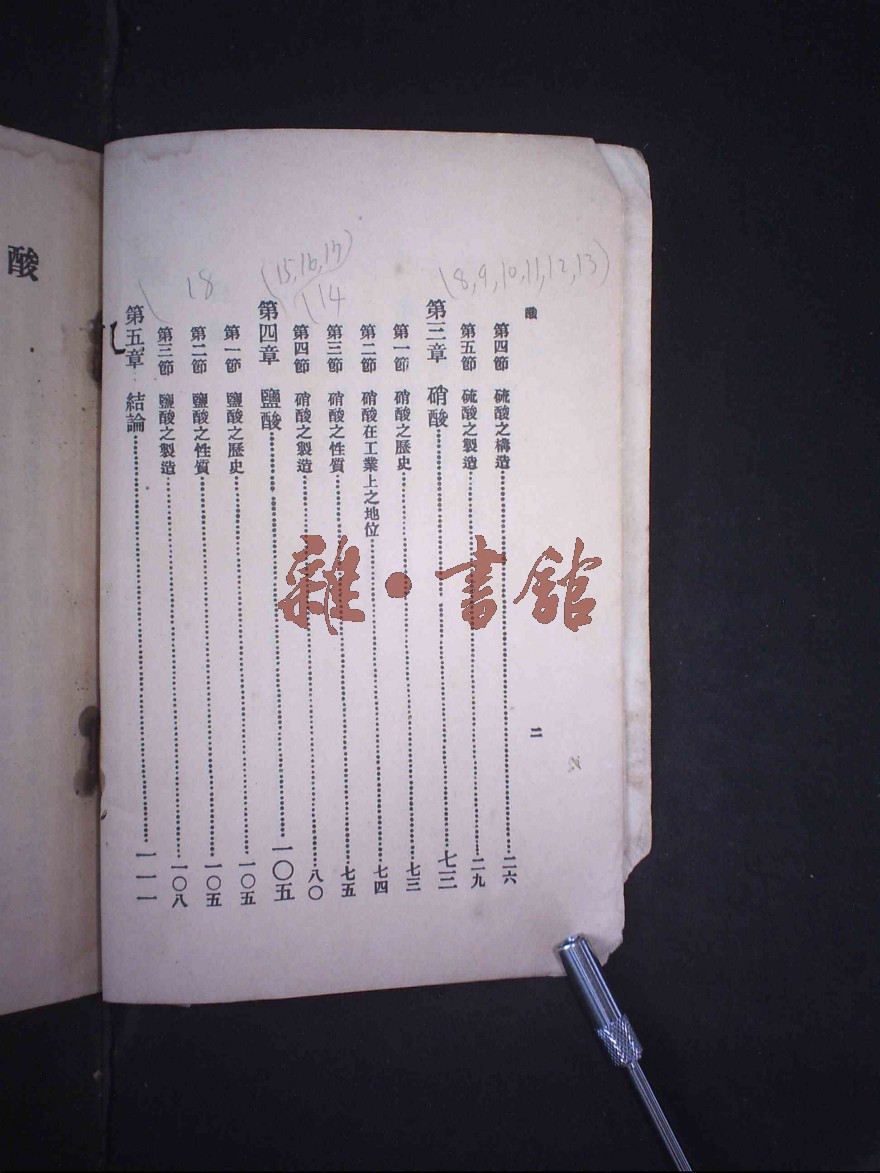 酸
二
第四節 硫酸之構造 二六
第五節 硫酸之製造 二九
第三章 硝酸 七三
第一節 硝酸之歷史 七三
第二節 硝酸在工業上之地位 七四
第三節 硝酸之性質 七五
第四節 硝酸之製造 八〇
第四章 鹽酸 一〇五
第一節 鹽酸之歷史 一〇五
第二節 鹽酸之性質 一〇五
第三節 鹽酸之製造 一〇八
第五章 結論 一一一
(8,9,10,11,12,13)
(15,16,17)
(14
18
酸
雜·書館